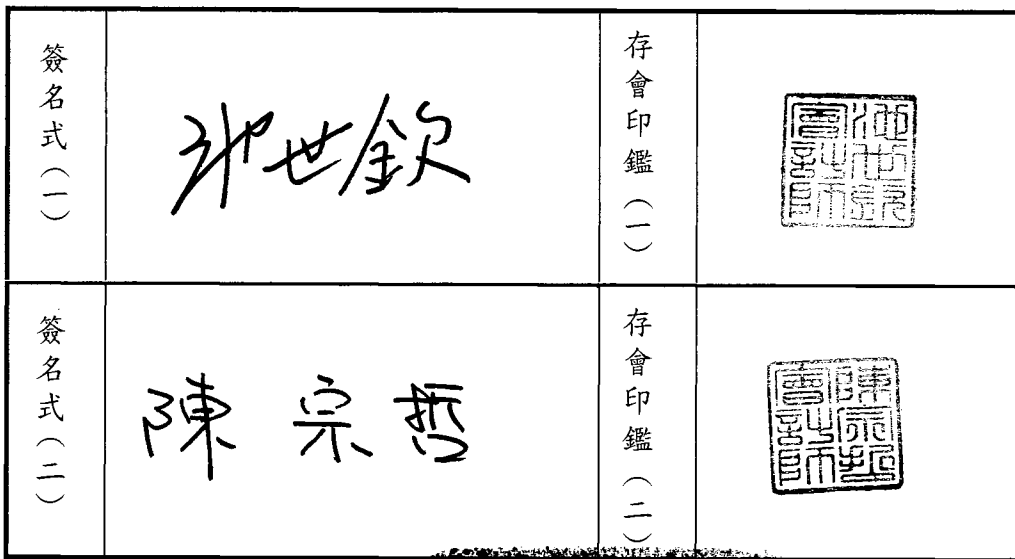 簽名式（一）
池世欽
存會印鑑（一）
池世欽
會計師
簽名式（二）
陳宗哲
存會印鑑（二）
陳宗哲
會計師